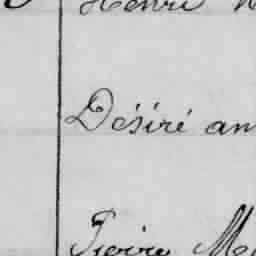 Henri
Désiré an
Pierre Ma